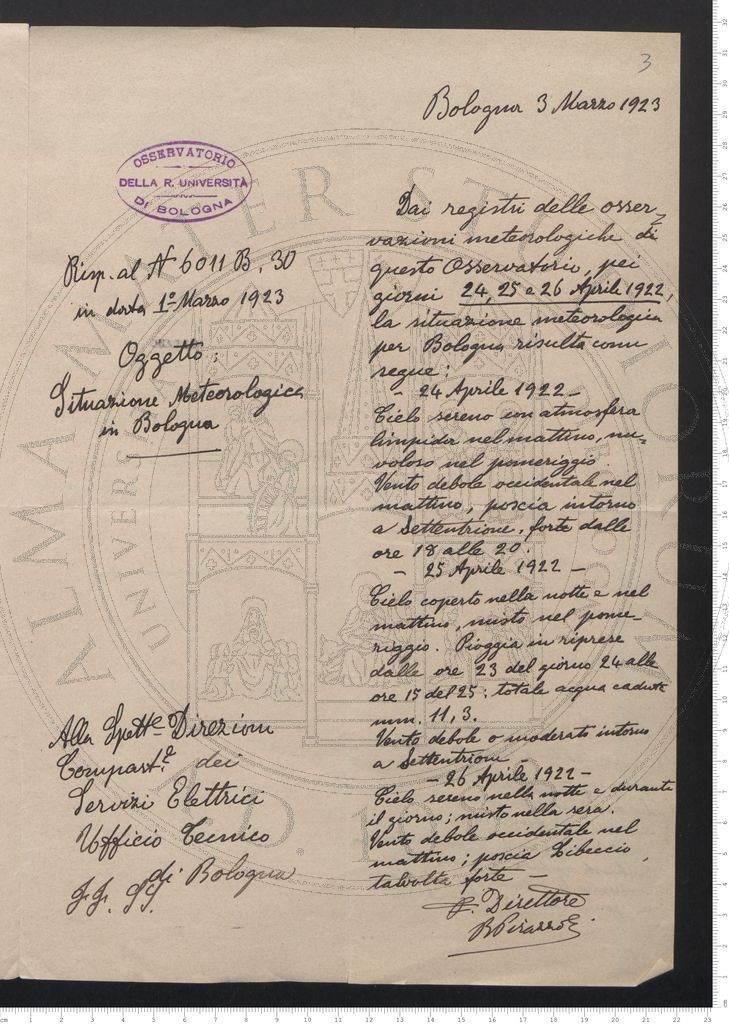 3
Bologna 3 Marzo 1923
OSSERVATORIO
DELLA R. UNIVERSITÀ
DI BOLOGNA
Risp. al N° 6011 B. 30
in data 1° Marzo 1923
Oggetto:
Situazione Meteorologica
in Bologna
Alla Spett.e Direzione
Compart.le dei
Servizi Elettrici
Ufficio Tecnico
di Bologna
FF. SS.
Dai registri delle osser-
vazioni meteorologiche di
questo Osservatorio, pei
giorni 24, 25 e 26 Aprile 1922,
la situazione meteorologica
per Bologna risulta come
segue:
- 24 Aprile 1922 -
Cielo sereno con atmosfera
limpida nel mattino, nu-
voloso nel pomeriggio.
Vento debole occidentale nel
mattino, poscia intorno
a Settentrione, forte dalle
ore 18 alle 20.
- 25 Aprile 1922 -
Cielo coperto nella notte e nel
mattino, misto nel pome-
riggio. Pioggia in riprese
dalle ore 23 del giorno 24 alle
ore 15 del 25: totale acqua caduta
mm. 11,3.
Vento debole o moderato intorno
a Settentrione
- 26 Aprile 1922 -
Cielo sereno nella notte e durante
il giorno; misto nella sera.
Vento debole occidentale nel
mattino; poscia Libeccio,
talvolta forte -
p. Direttore
ALMA MATER STUDIORUM